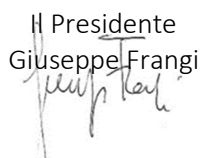 Il Presidente
Giuseppe Frangi